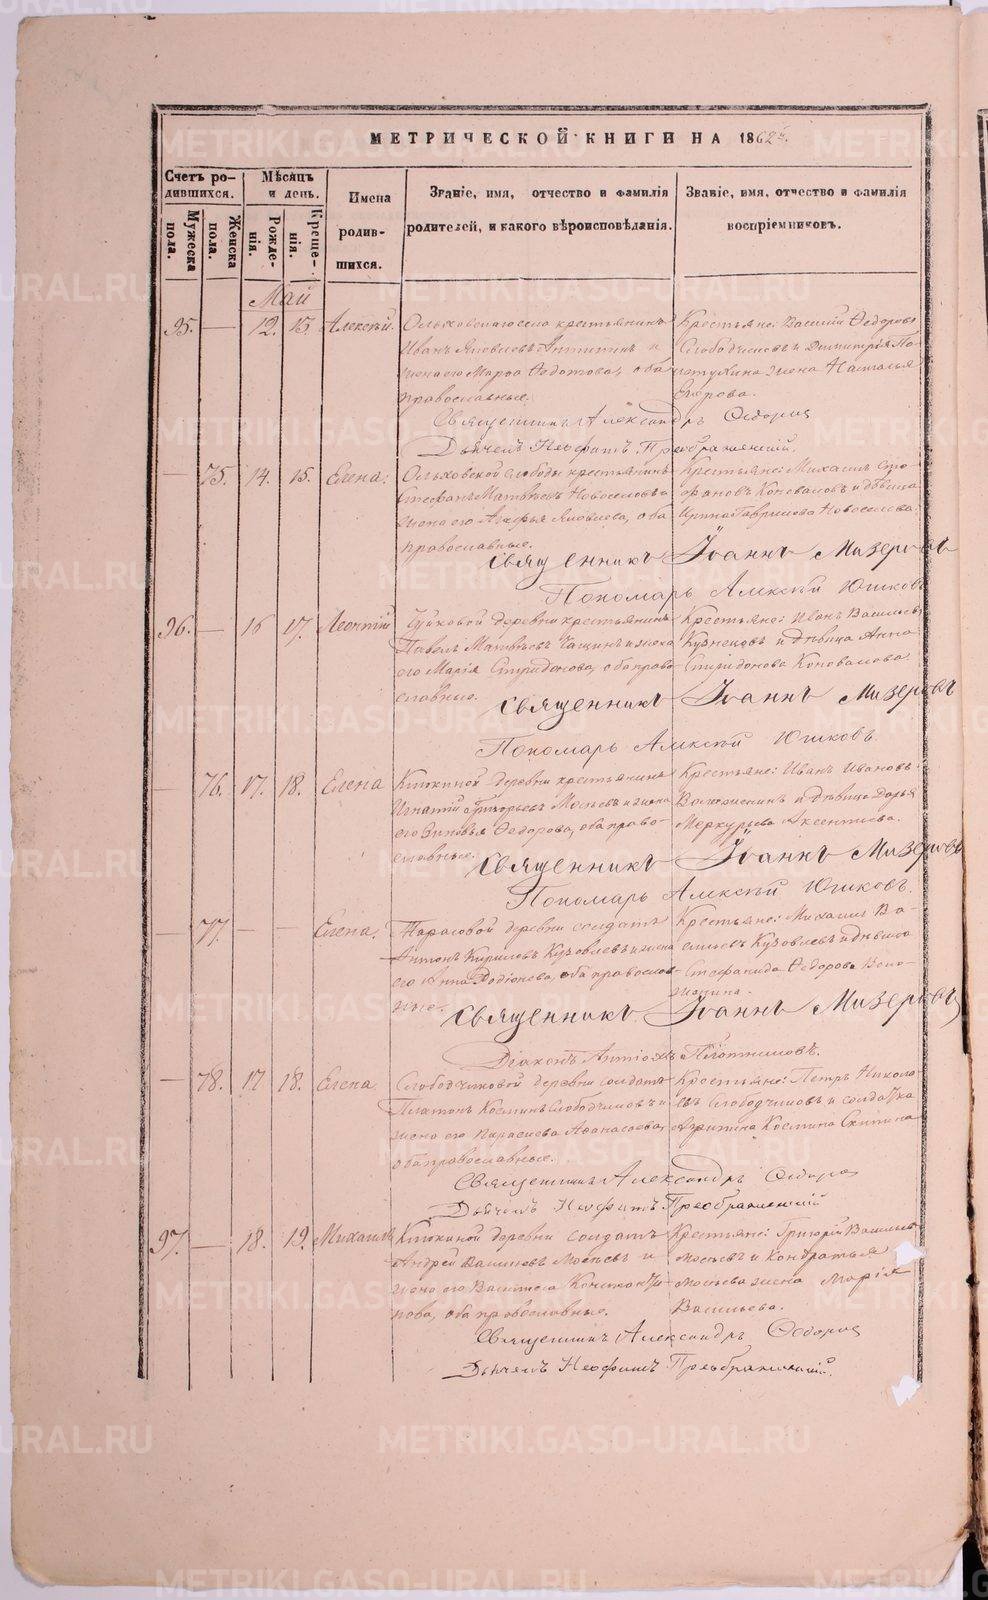 МЕТРИЧЕСКОЙ КНИГИ НА 1862й.
Счетъ родившихся.
Мужеска пола.
Женска пола.
Мѣсяцъ и день.
Рожденія.
Крещенія.
Имена родившихся.
Званіе, имя, отчество и фамилія родителей, и какого вѣроисповѣданія.
Званіе, имя, отчество и фамилія воспріемниковъ.
Май
95. — 12. 15. Алексѣй.
Ольховскаго села крестьянинъ
Иванъ Яковлевъ Антипинъ и
жена его Марфа Федотова, оба
православные.
Крестьяне: Василій Ѳедоровъ
Слободчиковъ и Димитрія
жена Наталья
Егорова.
Священникъ Александръ Сидоров
Дьячекъ Неофитъ Преображенскій.
— 75. 14. 15. Елена.
Ольховской слободы крестьянинъ
Стефанъ Матвѣевъ Новоселовъ и
жена его Агафья Яковлева, оба
православные.
Крестьяне: Михаилъ
Коноваловъ и дѣвица
Ирина Гаврилова Новоселова.
Священникъ Іоаннъ Мизеровъ
Пономарь Алексѣй Юшковъ
96. — 16 17. Леонтій
деревни крестьянинъ
Павелъ Матвѣевъ и жена
его Марія Спиридонова, оба право-
славные.
Крестьяне: Иванъ Васильевъ
Кузнецовъ и дѣвица Анна
Спиридонова Коновалова
Священникъ Іоаннъ Мизеровъ
Пономарь Алексѣй Юшковъ.
— 76. 17. 18. Елена
Клюкиной деревни крестьянинъ
Игнатій Григорьевъ Мосѣевъ и жена
его Зиновья Ѳедорова, оба право-
славные.
Крестьяне: Иванъ Ивановъ
и дѣвица Дарья
Меркурьева Аксентьева.
Священникъ Іоаннъ Мизеровъ
Пономарь Алексѣй Юшковъ.
— 77. — — Елена.
Тарасовой деревни солдатъ
Антонъ Кириловъ Кузовлевъ и жена
его Анна Родіонова, оба православ-
ные.
Крестьяне: Михаилъ Ва-
сильевъ Кузовлевъ и дѣвица
Стефанида Ѳедорова
Священникъ Іоаннъ Мизеровъ
Діаконъ Антіохъ Плотниковъ.
— 78. 17 18. Елена.
Слободчиковой деревни солдатъ
Платонъ Косминъ Слободчиковъ и
жена его Параскова Аѳанасьева,
оба православные.
Крестьяне: Петръ Никола-
евъ Слободчиковъ и солдатка
Космина
Священникъ Александръ Сидоров
Дьячекъ Неофитъ Преображенскій
97. — 18. 19. Михаилъ
Клюкиной деревни солдатъ
Андрей Васильевъ Мосѣевъ и
жена его Васса Константи-
нова, оба православные.
Крестьяне: Григорій Васильевъ
Мосѣевъ и Кондратья
Мосѣева жена Марія
Васильева.
Священникъ Александръ Сидоров
Дьячекъ Неофитъ Преображенскій.
METRIKI.GASO-URAL.RU